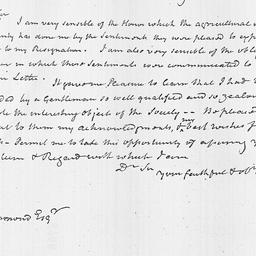 Sir
I am very sensible of the Honor which the agricultural
has done me by the Sentiments they were pleased to
to my Resignation. I am also very sensible of the
in which those Sentiments were communicated to
Letter.
It gives me Pleasure to learn that I had
by a Gentleman so well qualified and so
the interesting object of the Society --
to them my acknowledgments, & my best wishes
Permit me to take this opportunity of assuring
& Regard with which I am
Dr Sir
your faithful &
Esqr